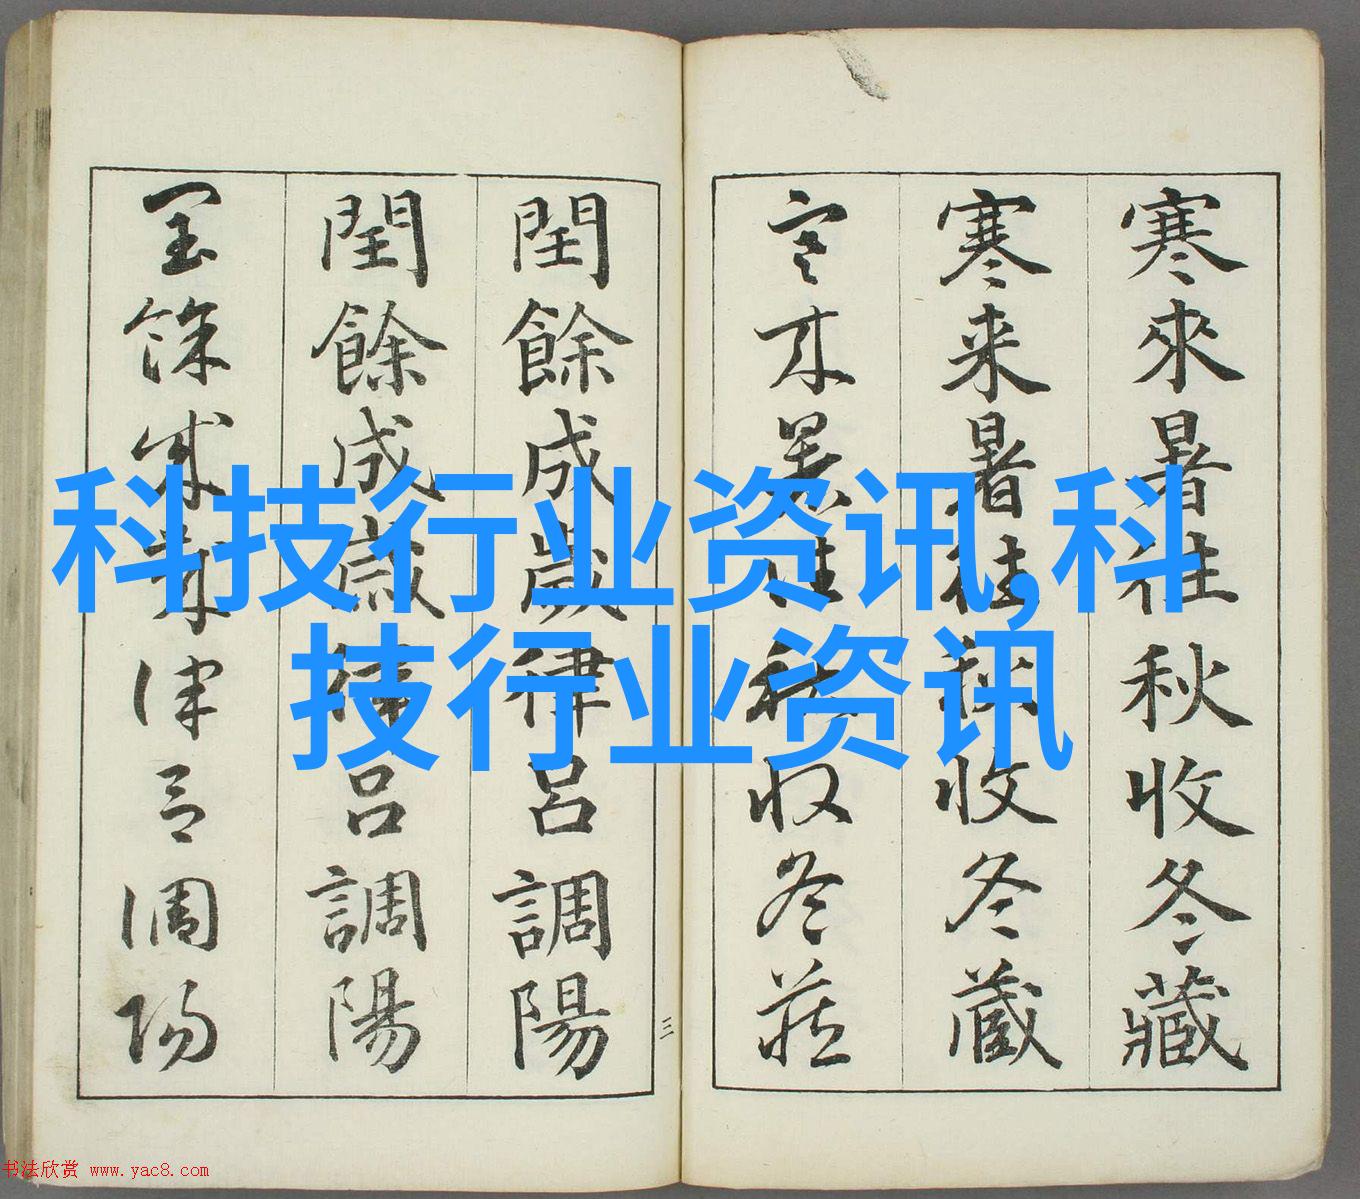 寒來暑往秋收冬藏
寒来暑往秋收冬蔵
寒来暑往秋收冬藏
閏餘成歲律呂調陽
閏餘成歳律呂調陽
閏餘成歲律呂調陽
三
科技行业资讯,科
技行业资讯
书法欣赏 www.yac8.com